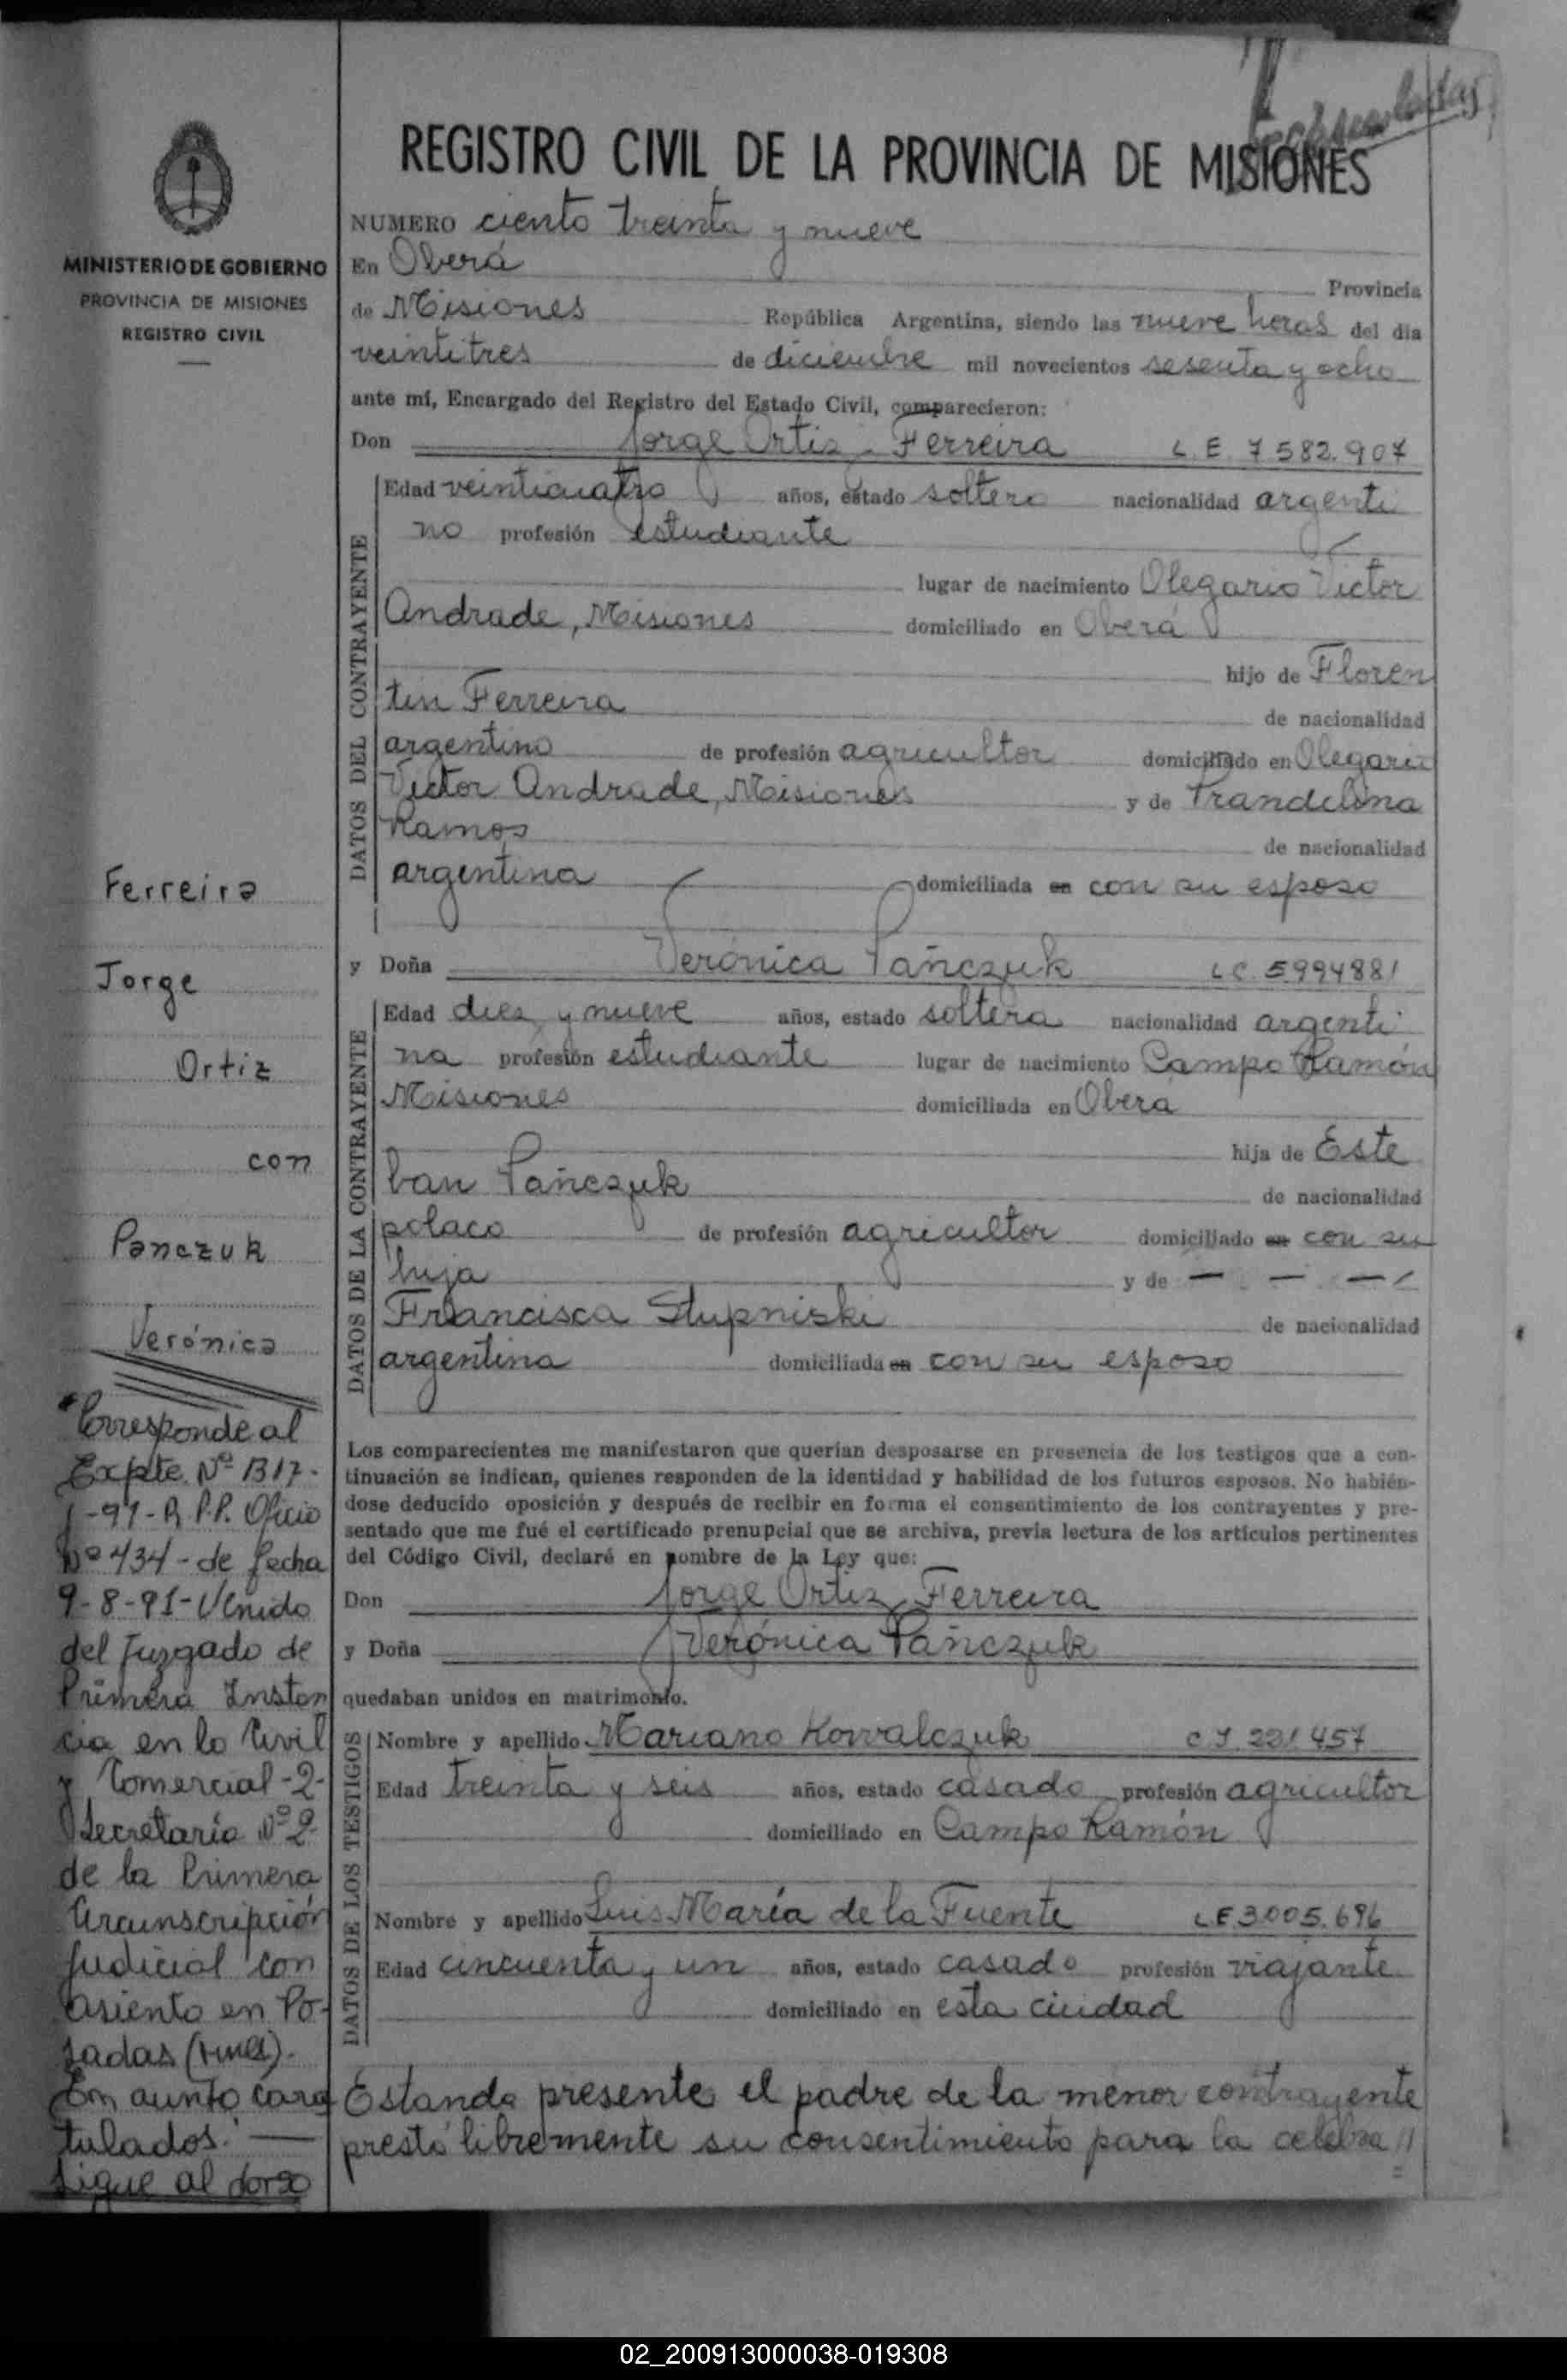 REGISTRO CIVIL DE LA PROVINCIA DE MISIONES
NUMERO ciento treinta y nueve
En Oberá
Provincia
de Misiones República Argentina, siendo las nueve horas del día
veintitres de diciembre mil novecientos sesenta y ocho
ante mí, Encargado del Registro del Estado Civil, comparecieron:
Don Jorge Ortiz Ferreira L.E. 7582.907
DATOS DEL CONTRAYENTE
Edad veinticuatro años, estado soltero nacionalidad argenti
no profesión estudiante
lugar de nacimiento Olegario Victor
Andrade, Misiones domiciliado en Oberá
hijo de Floren
tin Ferreira
de nacionalidad
argentino de profesión agricultor domiciliado en Olegario
Victor Andrade, Misiones y de Prandelina
Ramos
de nacionalidad
argentina domiciliada en con su esposo
y Doña Verónica Pañczuk L.C. 5994881
DATOS DE LA CONTRAYENTE
Edad diez y nueve años, estado soltera nacionalidad argenti
na profesión estudiante lugar de nacimiento Campo Ramón
Misiones domiciliada en Oberá
hija de Este
ban Pañczuk
de nacionalidad
polaco de profesión agricultor domiciliado en con su
hija y de — — —
Francisca Stupniski
de nacionalidad
argentina domiciliada en con su esposo
Los comparecientes me manifestaron que querían desposarse en presencia de los testigos que a con-
tinuación se indican, quienes responden de la identidad y habilidad de los futuros esposos. No habién-
dose deducido oposición y después de recibir en forma el consentimiento de los contrayentes y pre-
sentado que me fué el certificado prenupcial que se archiva, previa lectura de los artículos pertinentes
del Código Civil, declaré en nombre de la Ley que:
Don Jorge Ortiz Ferreira
y Doña Verónica Pañczuk
quedaban unidos en matrimonio.
DATOS DE LOS TESTIGOS
Nombre y apellido Mariano Kowalczuk C I. 221.457
Edad treinta y seis años, estado casado profesión agricultor
domiciliado en Campo Ramón
Nombre y apellido Luis María de la Fuente L.E 3.005.696
Edad cincuenta y un años, estado casado profesión viajante
domiciliado en esta ciudad
Estando presente el padre de la menor contrayente
prestó libremente su consentimiento para la celebra //
MINISTERIO DE GOBIERNO
PROVINCIA DE MISIONES
REGISTRO CIVIL
Ferreira
Jorge
Ortiz
con
Panczuk
Verónica
Corresponde al
Expte. Nº 1317-
-91- R.P.P. Oficio
Nº 434- de fecha
9-8-91- Venido
del Juzgado de
Primera Instan
cia en lo Civil
y Comercial -2-
Secretaría Nº 2
de la Primera
Circunscripción
Judicial con
asiento en Po-
sadas (Mnes).
En aunto cara
tulados: —
sigue al dorso
02_200913000038-019308